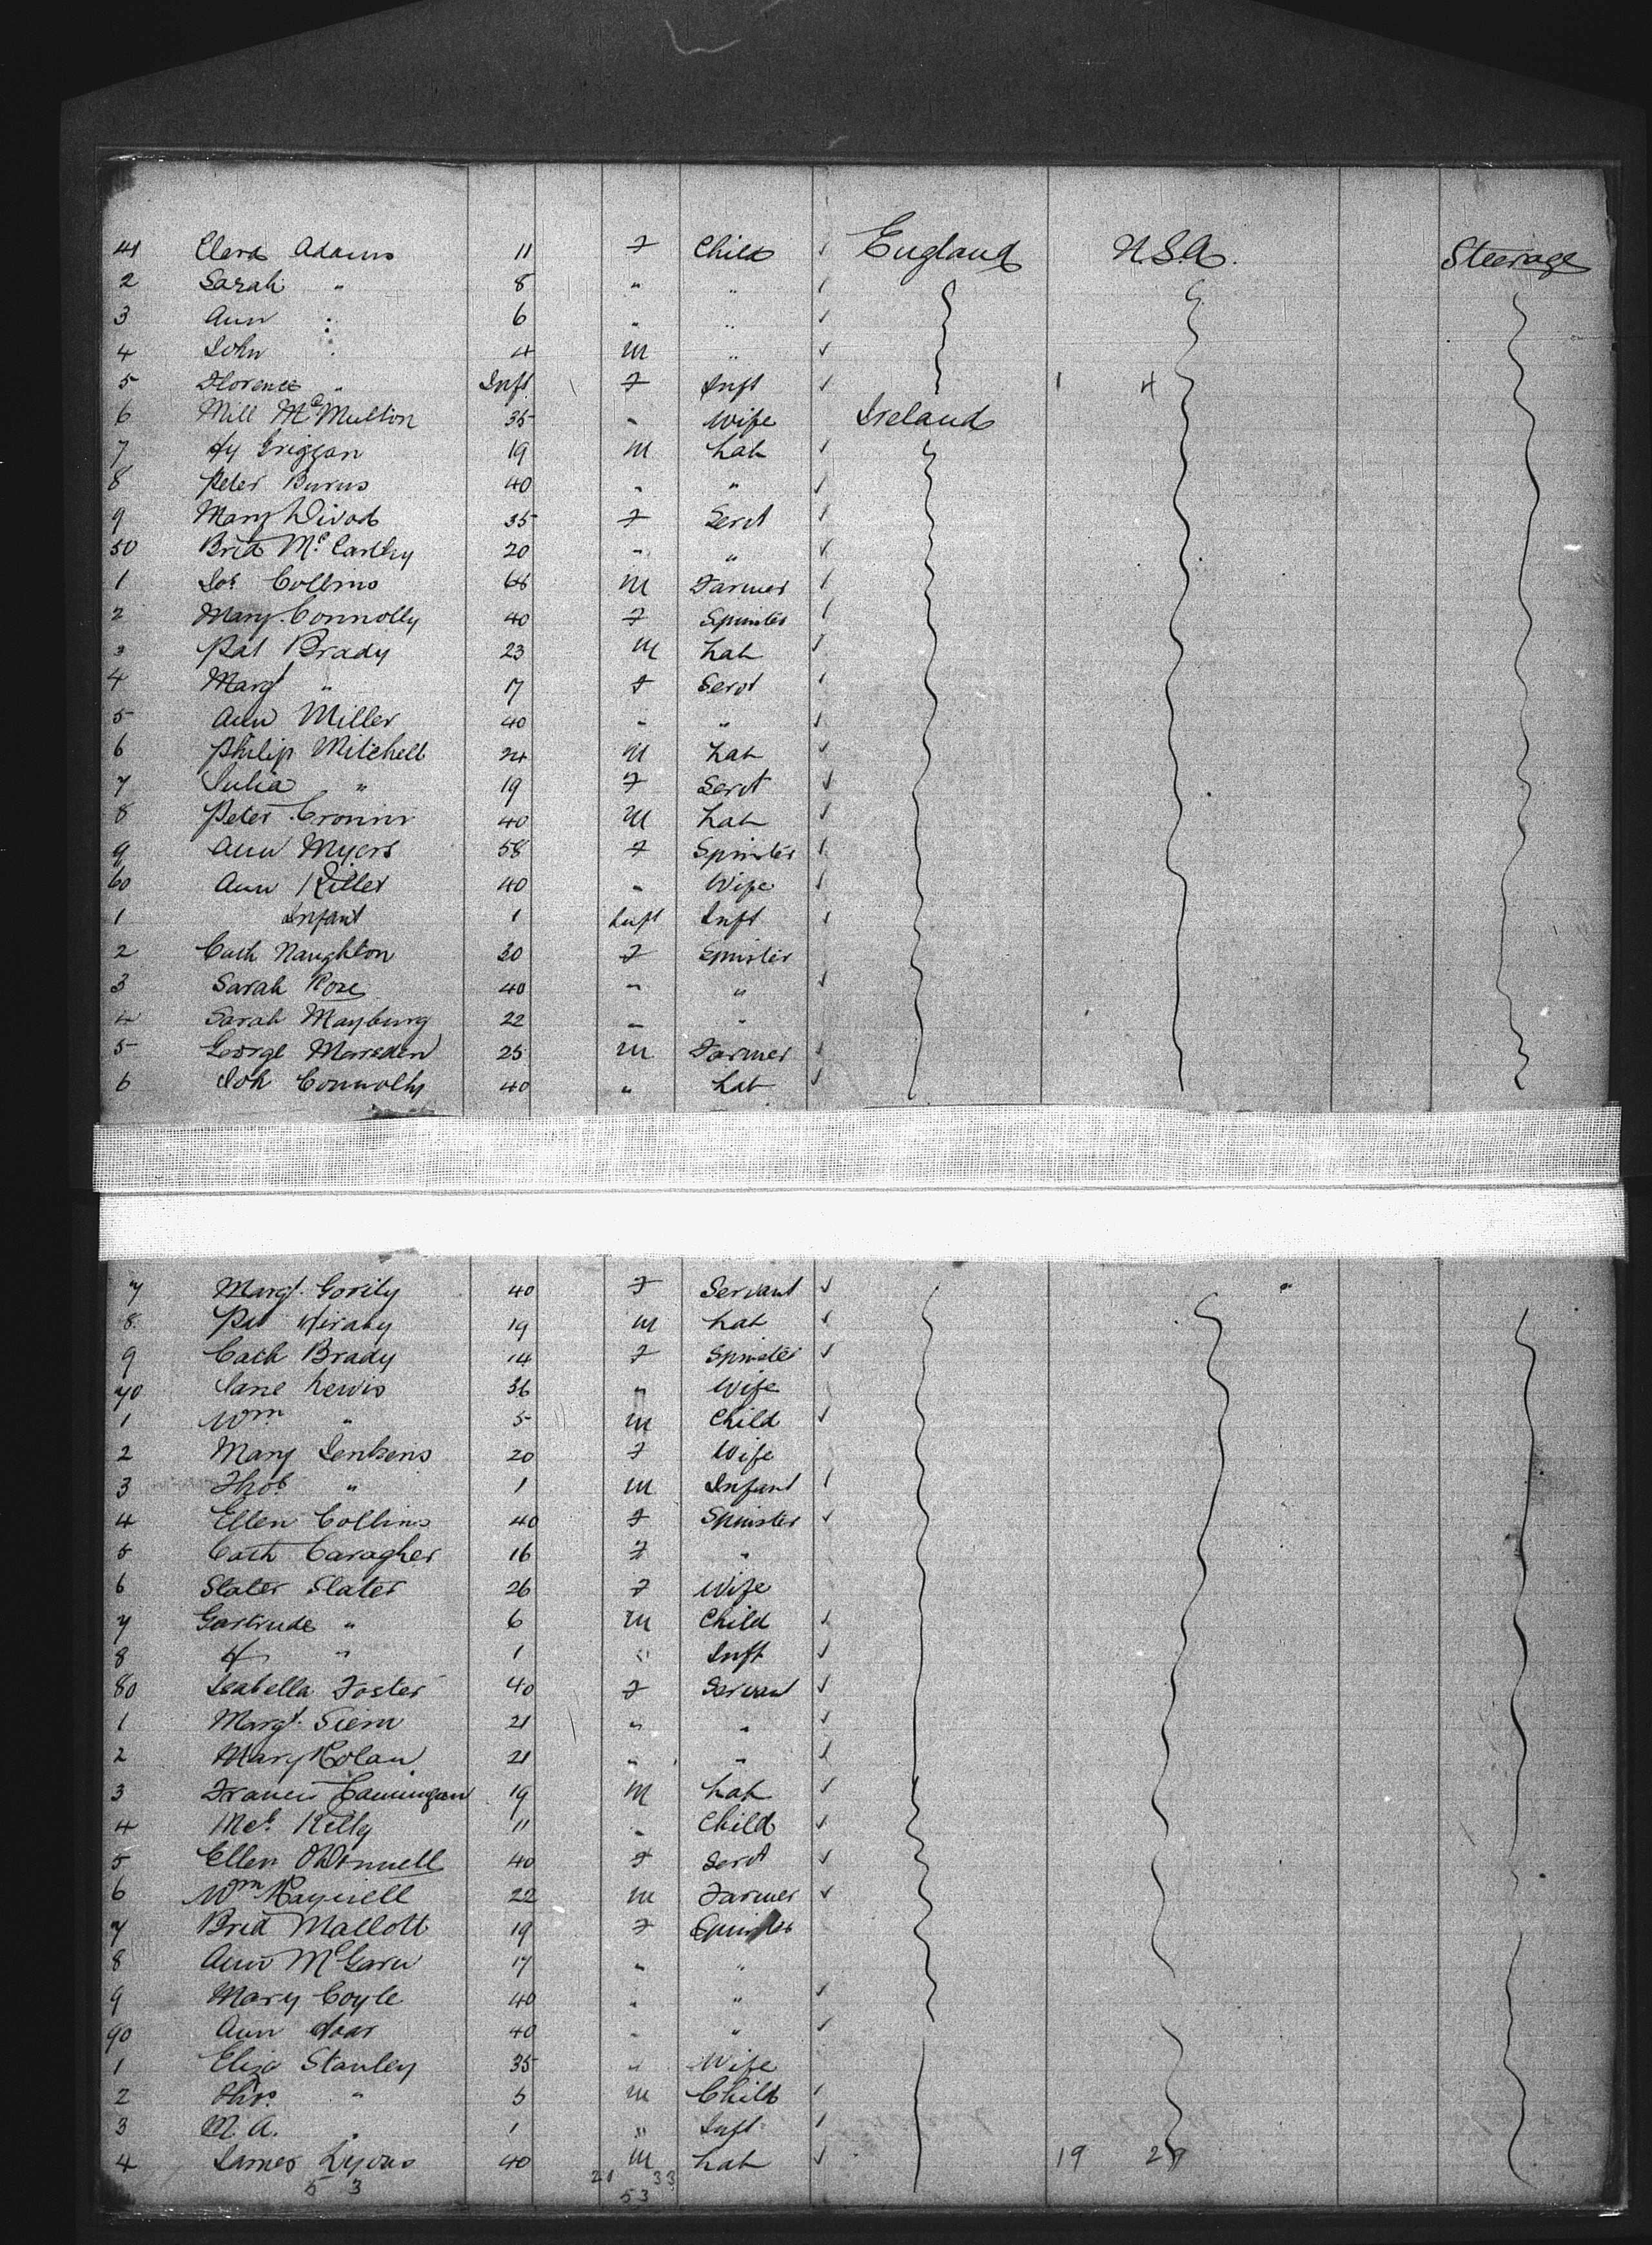 41 Clara Adams 11 F Child ✓ England U.S.A. Steerage
2 Sarah " 8 " " ✓
3 Ann " 6 " " ✓
4 John " 4 M " ✓
5 Florence " Inft F Inft ✓ 1 4
6 Mill McMullon 35 " Wife Ireland
7 Hy Griggan 19 M Lab ✓
8 Peter Burns 40 " " ✓
9 Mary 35 F Servt ✓
50 Brid McCarthy 20 " " ✓
1 Jos Collins M Farmer ✓
2 Mary Connolly 40 F Spinster ✓
3 Pat Brady 23 M Lab ✓
4 Margt " 17 F Servt ✓
5 Ann Miller 40 " " ✓
6 Philip Mitchell 24 M Lab ✓
7 Julia " 19 F Servt ✓
8 Peter Cronin 40 M Lab ✓
9 Ann Myers 58 F Spinster ✓
60 Ann Kitter 40 " Wife ✓
1 Infant 1 Inft Inft ✓
2 Cath Naughton 30 F Spinster
3 Sarah Rose 40 " " ✓
4 Sarah Mayburg 22 " "
5 George Marsden 25 M Farmer ✓
6 Joh Connolly 40 " Lab ✓
7 Margt. Gorily 40 F Servant ✓ "
8 Pat 19 M Lab ✓
9 Cath Brady 14 F Spinster ✓
70 Jane Lewis 36 " Wife
1 Wm " 5 M Child ✓
2 Mary Jenkens 20 F Wife
3 Thos " 1 M Infant ✓
4 Ellen Collins 40 F Spinster ✓
5 Cath Caragher 16 F "
6 Slater Slater 26 F Wife
7 Gertrude " 6 M Child ✓
8 H " 1 " Inft ✓
80 Isabella Foster 40 F Servant ✓
1 Margt. Tiern 21 " " ✓
2 Mary Nolan 21 " " ✓
3 Francis 19 M Lab ✓
4 Kelly 11 " Child ✓
5 Ellen O'Donnell 40 F Servt ✓
6 Wm 22 M Farmer ✓
7 Brid Mallott 19 F Spinster
8 Ann McGarn 17 " "
9 Mary Coyle 40 " " ✓
90 Ann Hoar 40 " " ✓
1 Eliza Stanley 35 " Wife
2 Thos. " 5 M Child ✓
3 M. A. " 1 " Inft ✓
4 James Lyons 40 M Lab ✓ 19 29
53 20 33
53